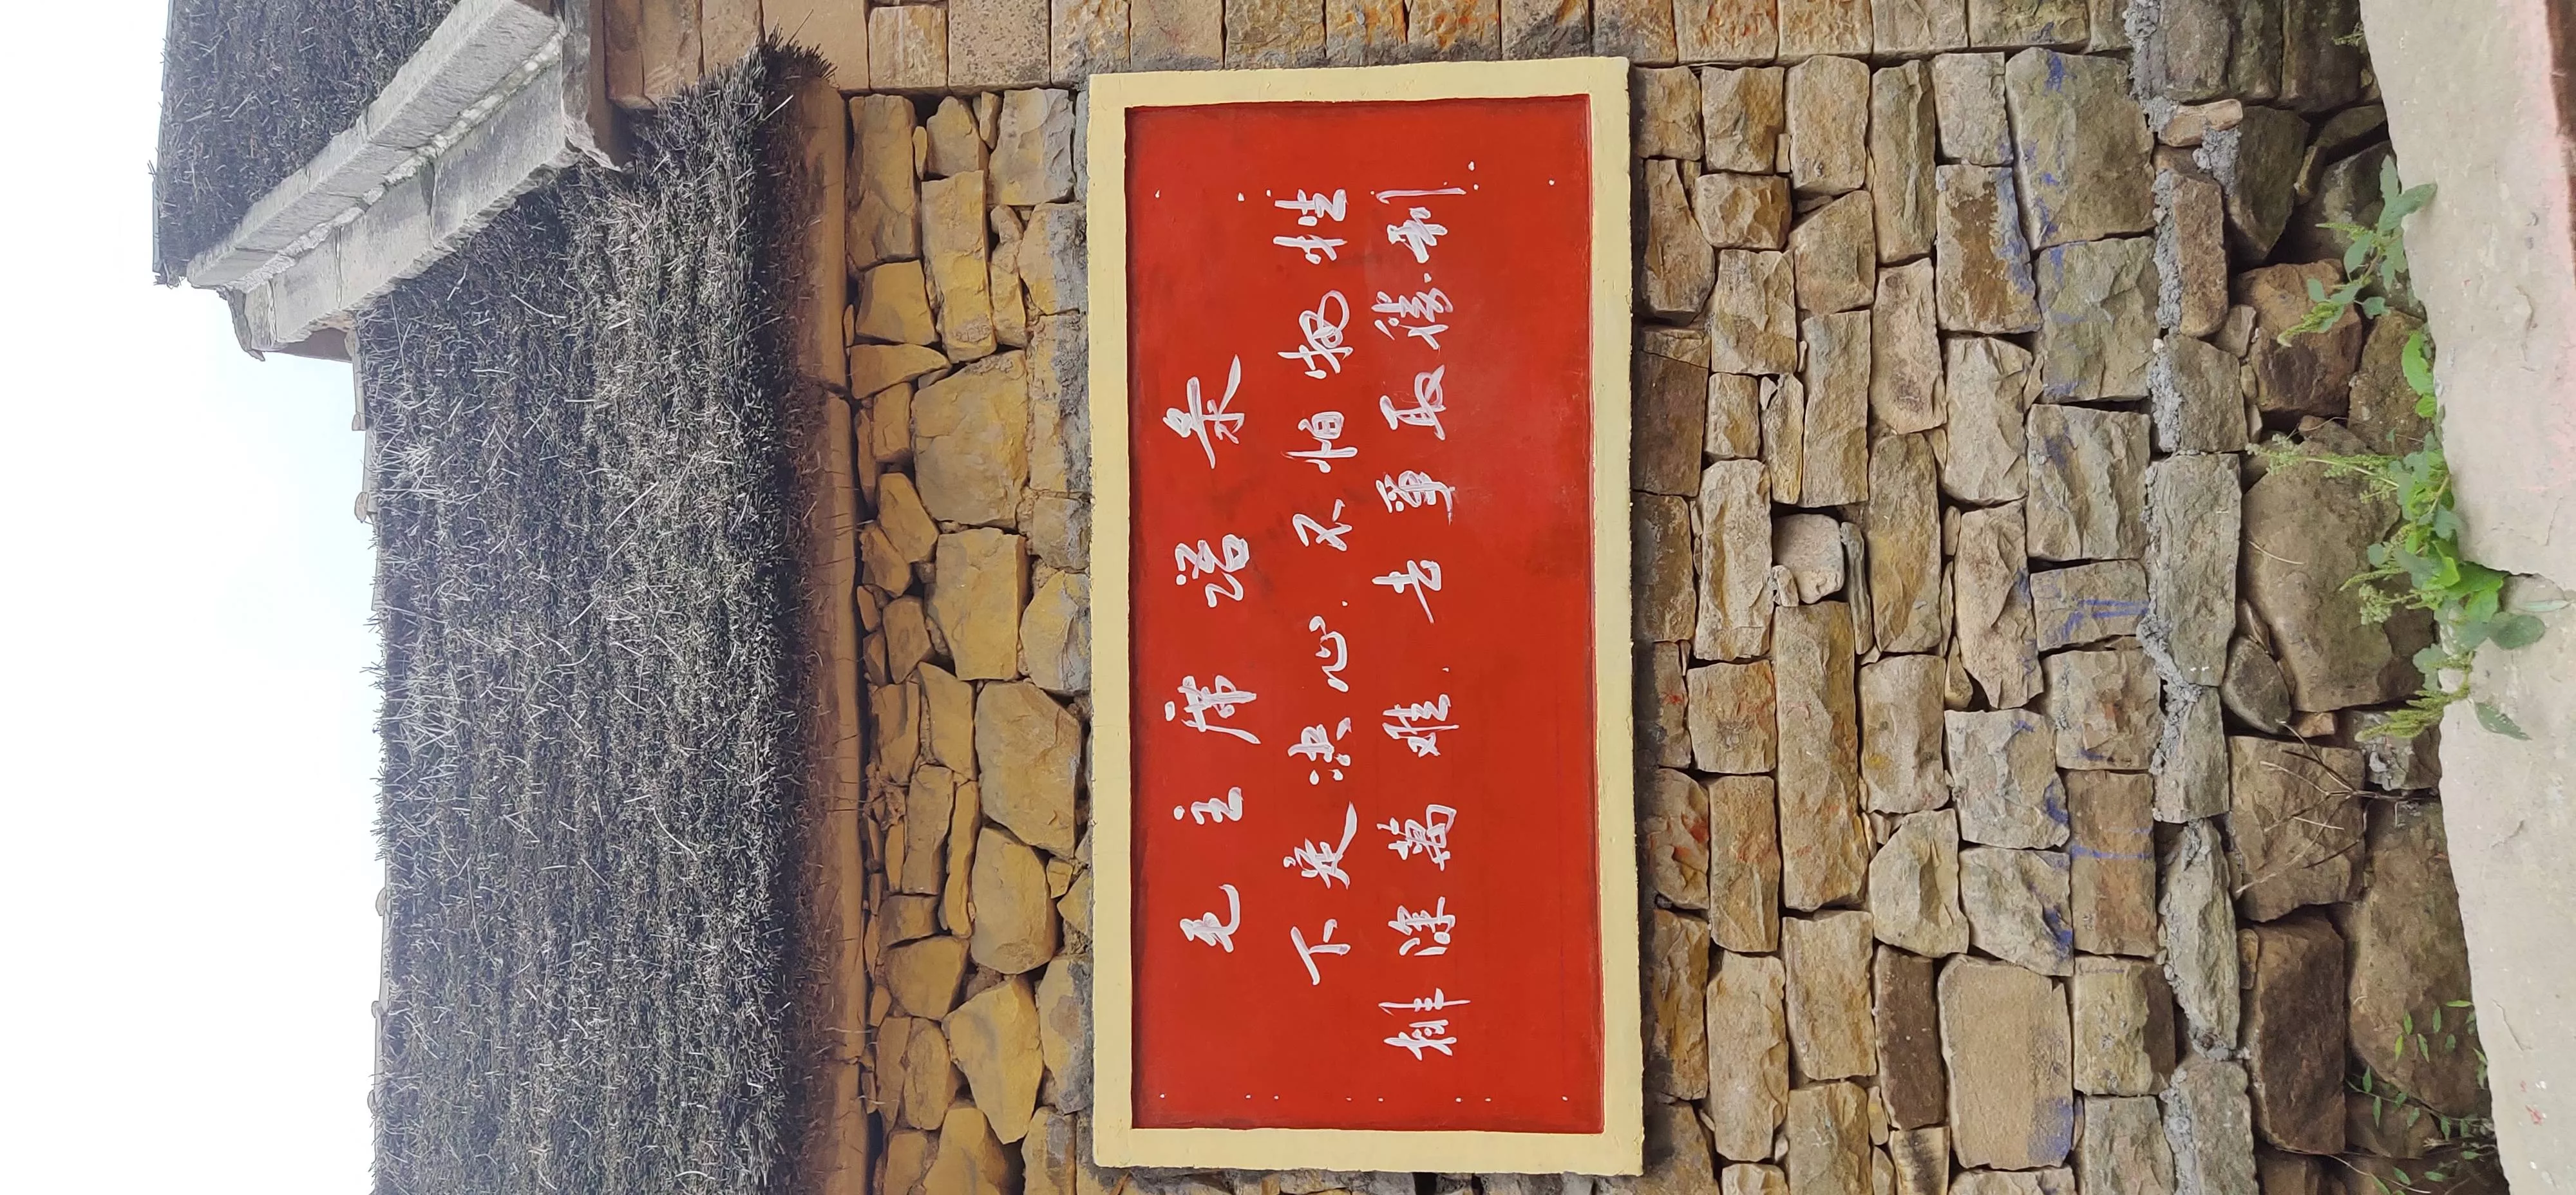 毛主席语录
下定決心.不怕牺牲
排除萬难.去爭取勝利.